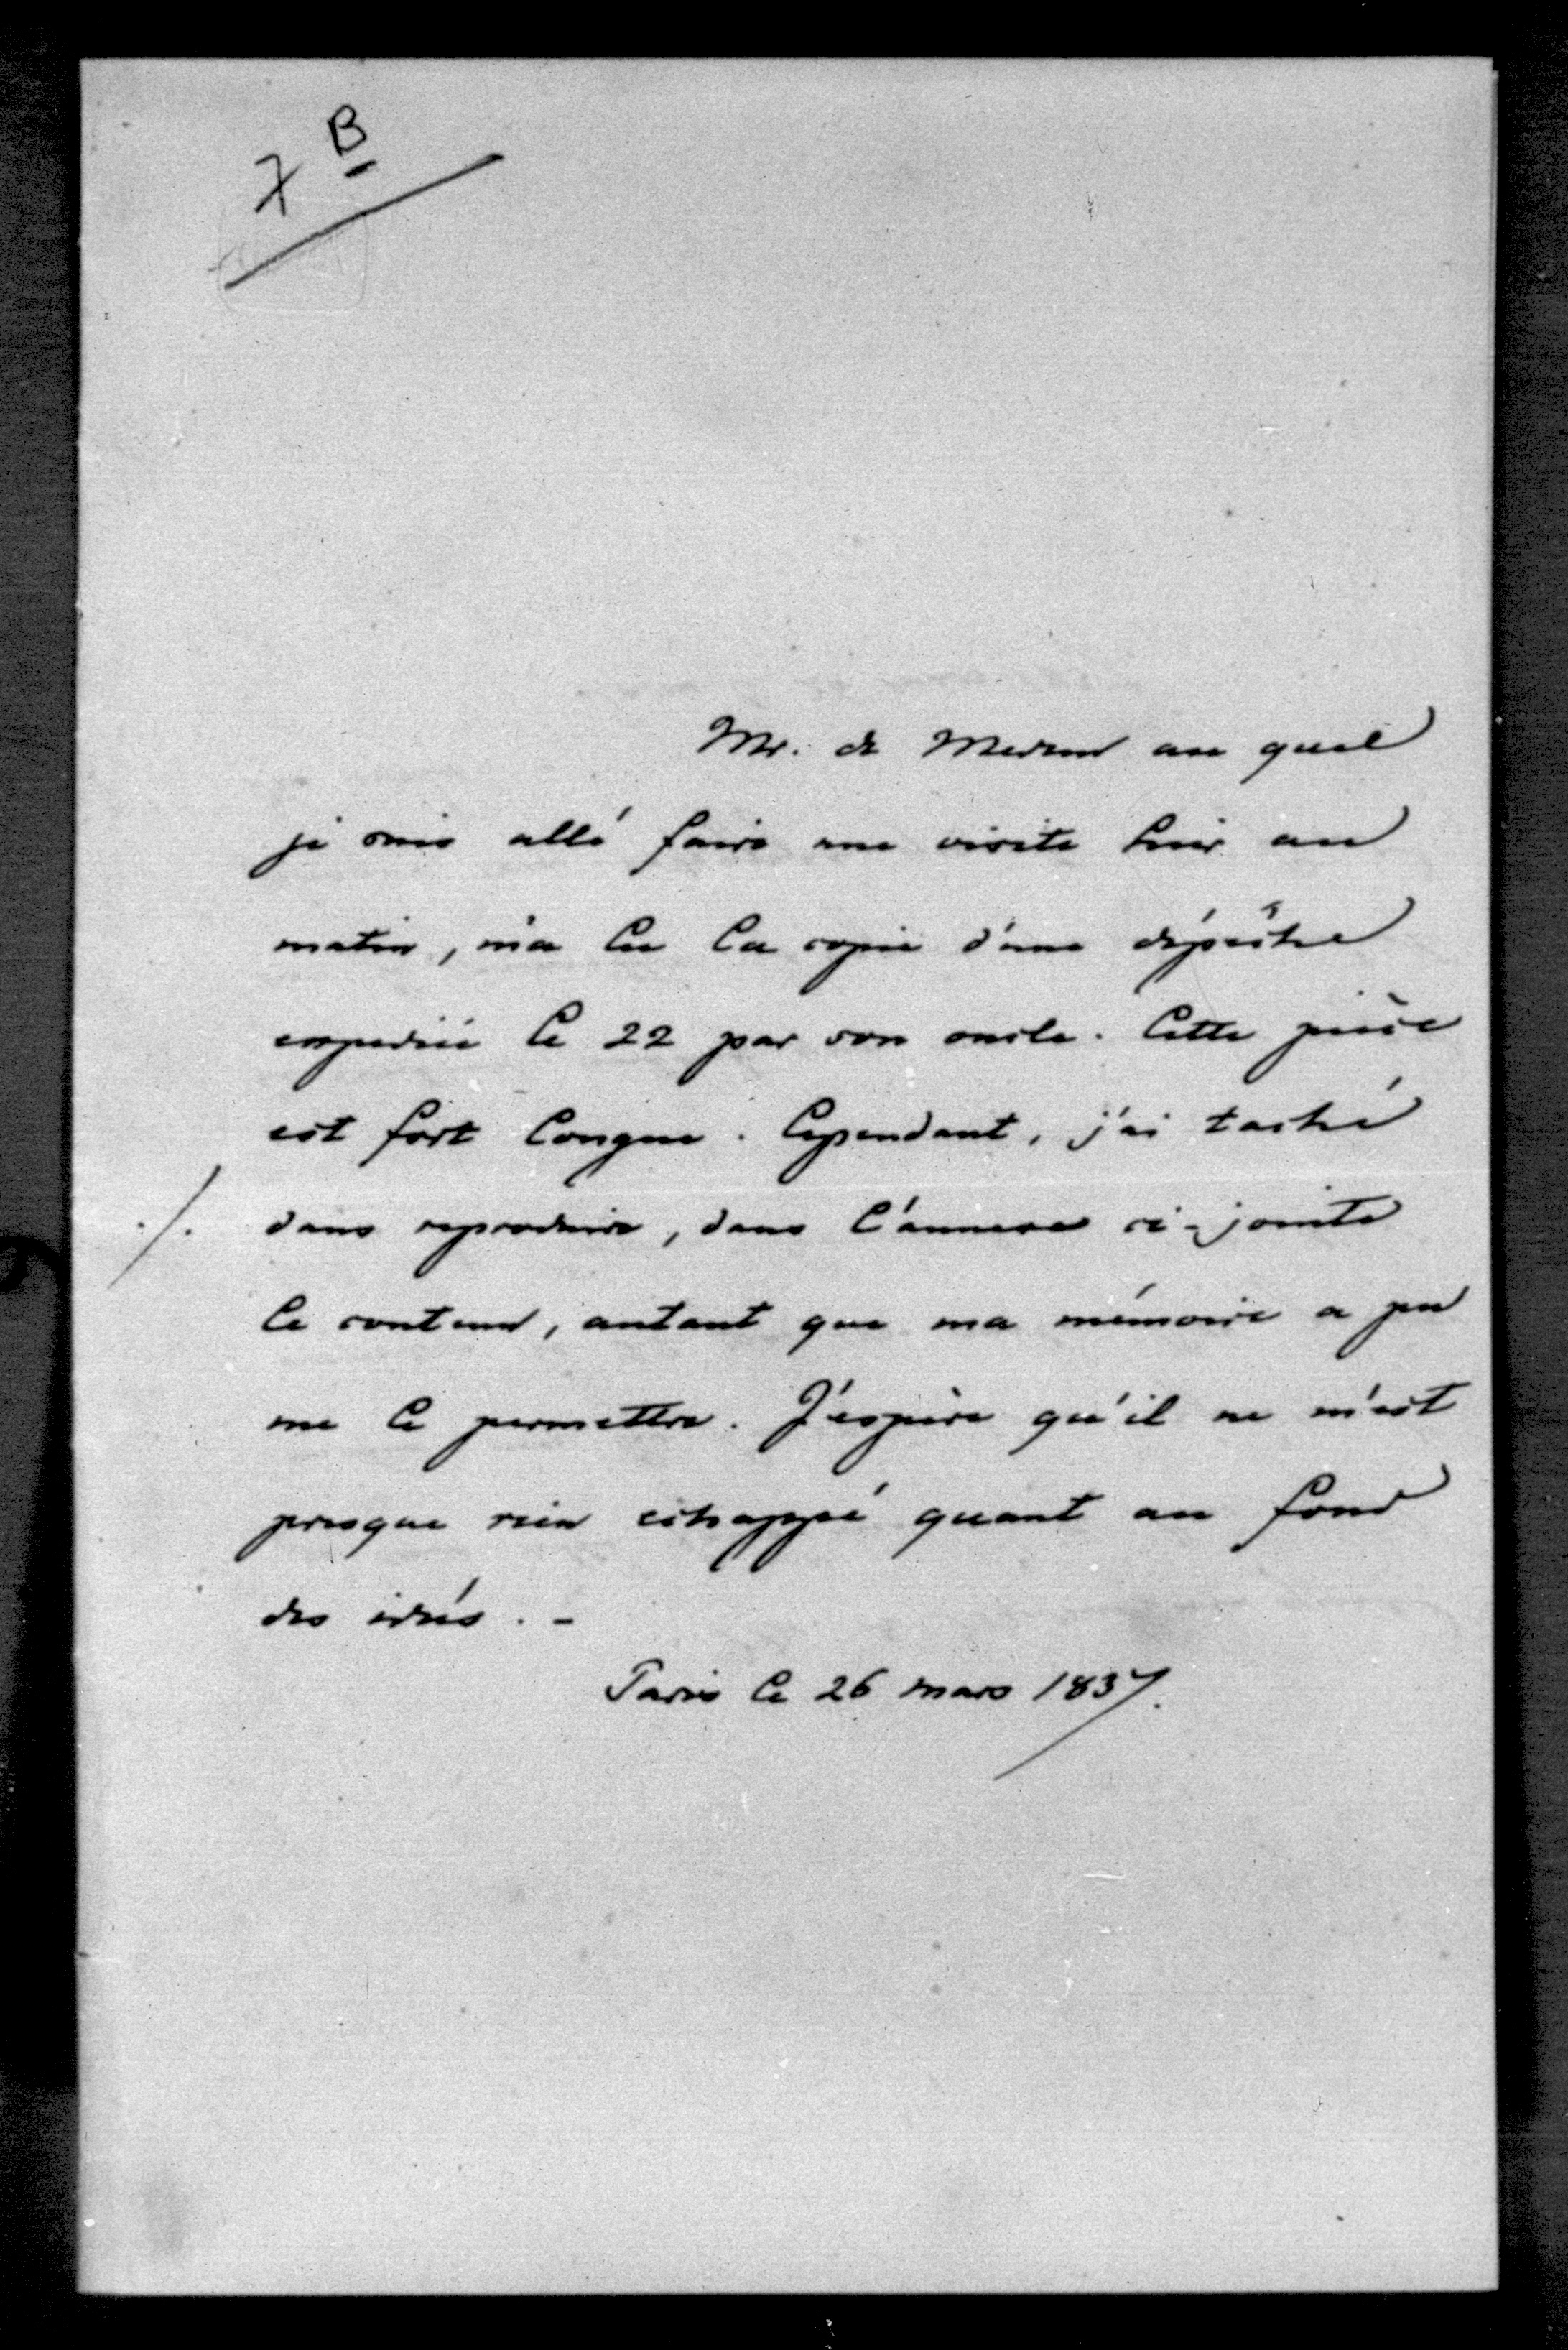 7 B
Mr. de Medem au quel
je suis allé faire une visite hier au
matin, m'a lu la copie d'une dépêche
expediée le 22 par son oncle. Cette pièce
est fort longue. Cependant, j'ai taché
./. dans reproduire, dans l'annexe ci-jointe
le contenu, autant que ma mémoire a pu
me le permettre. J'espère qu'il ne m'est
presque rien echappé quant au fond
des idées. -
Paris le 26 mars 1837.